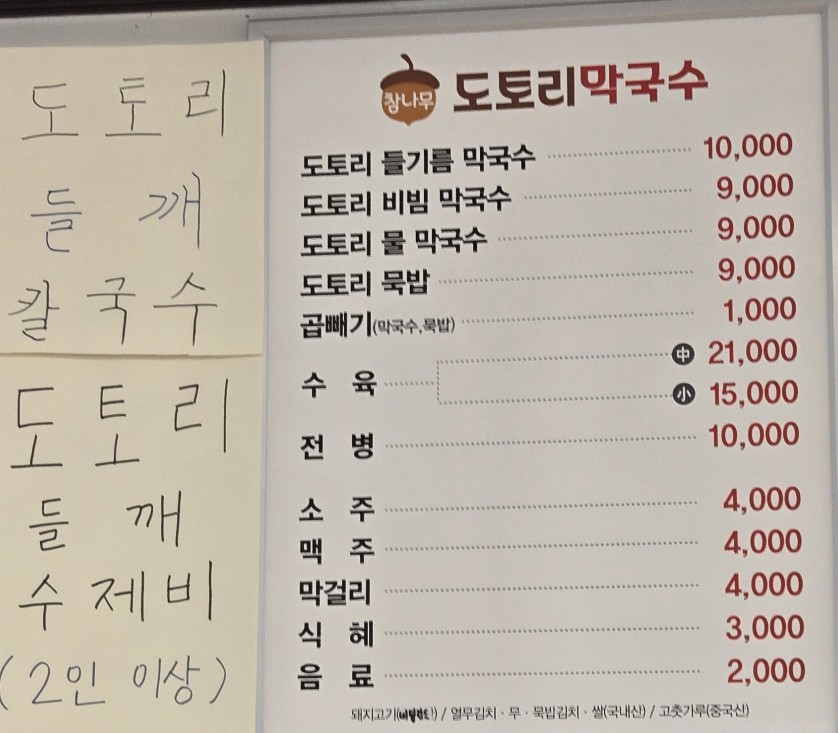 도토리
들깨
칼국수
도토리
들깨
수제비
(2인 이상)
참나무 도토리막국수
도토리 들기름 막국수 10,000
도토리 비빔 막국수 9,000
도토리 물 막국수 9,000
도토리 묵밥 9,000
곱빼기(막국수,묵밥) 1,000
수육 中 21,000
小 15,000
전병 10,000
소주 4,000
맥주 4,000
막걸리 4,000
식혜 3,000
음료 2,000
돼지고기 / 열무김치 · 무 · 묵밥김치 · 쌀(국내산) / 고춧가루(중국산)